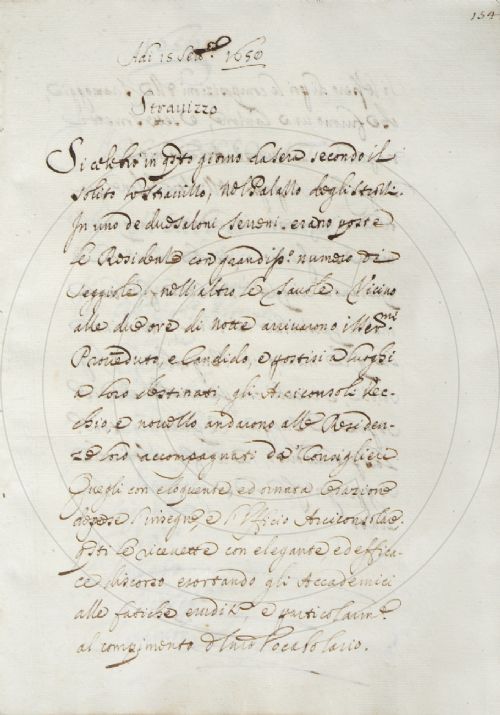 154
Adi 15 Sett.e 1650
Stravizzo
Si celebrò in q.sto giorno da sera secondo il
solito lo stravizzo, nel Palazzo degli Strozzi.
In uno de due saloni terreni erano poste
le Residenze con grandiss.o numero di
seggiole, nell'altro le Tavole. Vicino
alle due ore di notte arrivarono i Ser.mi
Proveduto, e Candido, e postisi a luoghi
a loro destinati, gli Arciconsoli Vec-
chio, e novello andarono alle Residen-
ze loro accompagnati da Consiglieri
Quegli con eloquente, ed ornata orazione
depose l'insegne, e l'Uffizio Arciconsolare.
q.sti le ricevette con elegante, ed effica-
ce discorso esortando gli Accademici
alle fatiche erudite, e particolarm.e
al compimento del Vocabolario.